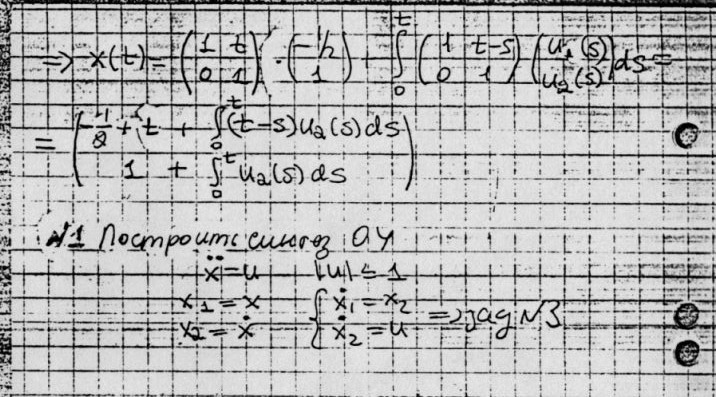 => x(t) = (1 t 0 1) · (-1/2 1) + ∫₀ᵗ (1 t-s 0 1) (u₁(s) u₂(s)) ds =
= (-1/2 + t + ∫₀ᵗ (t-s)u₂(s)ds 1 + ∫₀ᵗ u₂(s)ds)
№1 Построить синтез ОУ
ẍ = u |u| ≤ 1
x₁ = x { ẋ₁ = x₂
x₂ = ẋ ẋ₂ = u => зад №3